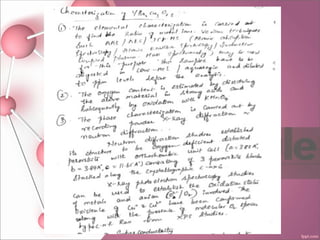 Characterization of YBa2Cu3O7-δ
(1) The elemental characterization is carried out
to find the Ratio of metal ions. Various techniques
such AAS / AES / ICP MS (Atomic absorption
Spectroscopy / Atomic Emission Spectroscopy / Inductive
coupled plasma Mass Spectroscopy) may be used
for this purpose. The samples have to be
digested in conc. HCl / aquaregia and diluted
to ppm levels before the analysis.
(2) The oxygen content is estimated by dissolving
the above material in strong acids and
subsequently by oxidation with KMnO4
(3) The phase characterization is carried out by
recording powder X-Ray diffraction or
neutron diffraction.
Neutron diffraction studies established
its structure to be oxygen deficient distorted
perovskite with orthorhombic unit cell (a=3.82Å
b=3.89Å, c=11.68Å) consisting of 3 perovskite blocks
stacked along the crystallographic c-axis
X-Ray photoelectron spectroscopy studies
can be used to establish the oxidation states
of metals and anion (O2-/O2 2-) involved. The
existence of Cu2+ & Cu3+ have been confirmed
along with the presence of molecular O2 species
types at Room from XPS studies.
Superconductivity
le